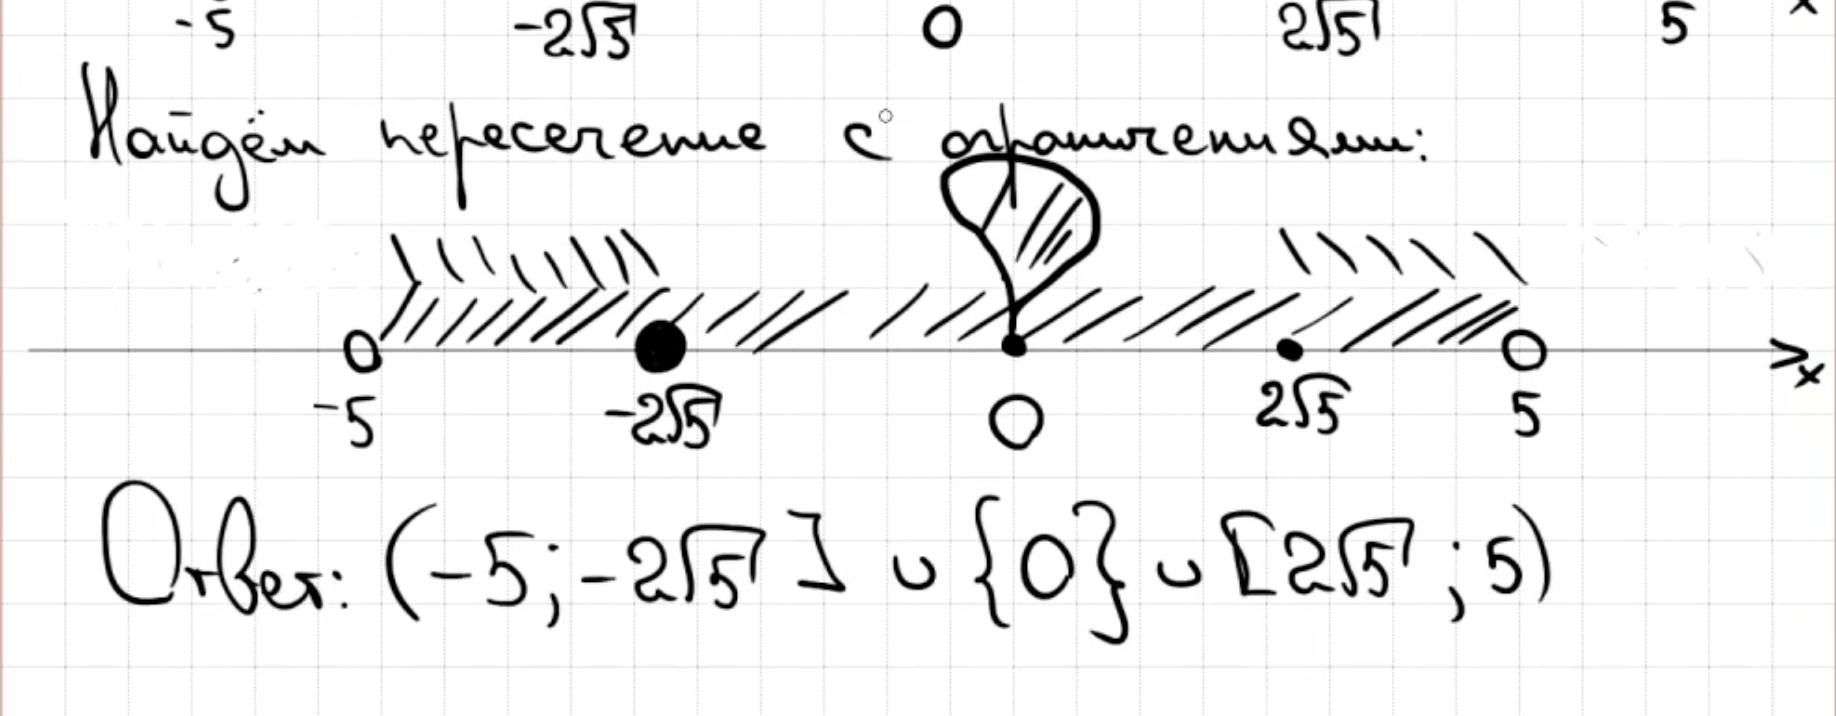 -5 -2√5 0 2√5 5 x
Найдём пересечение с ограничениями:
-5 -2√5 0 2√5 5 x
Ответ: (-5; -2√5] ∪ {0} ∪ [2√5; 5)